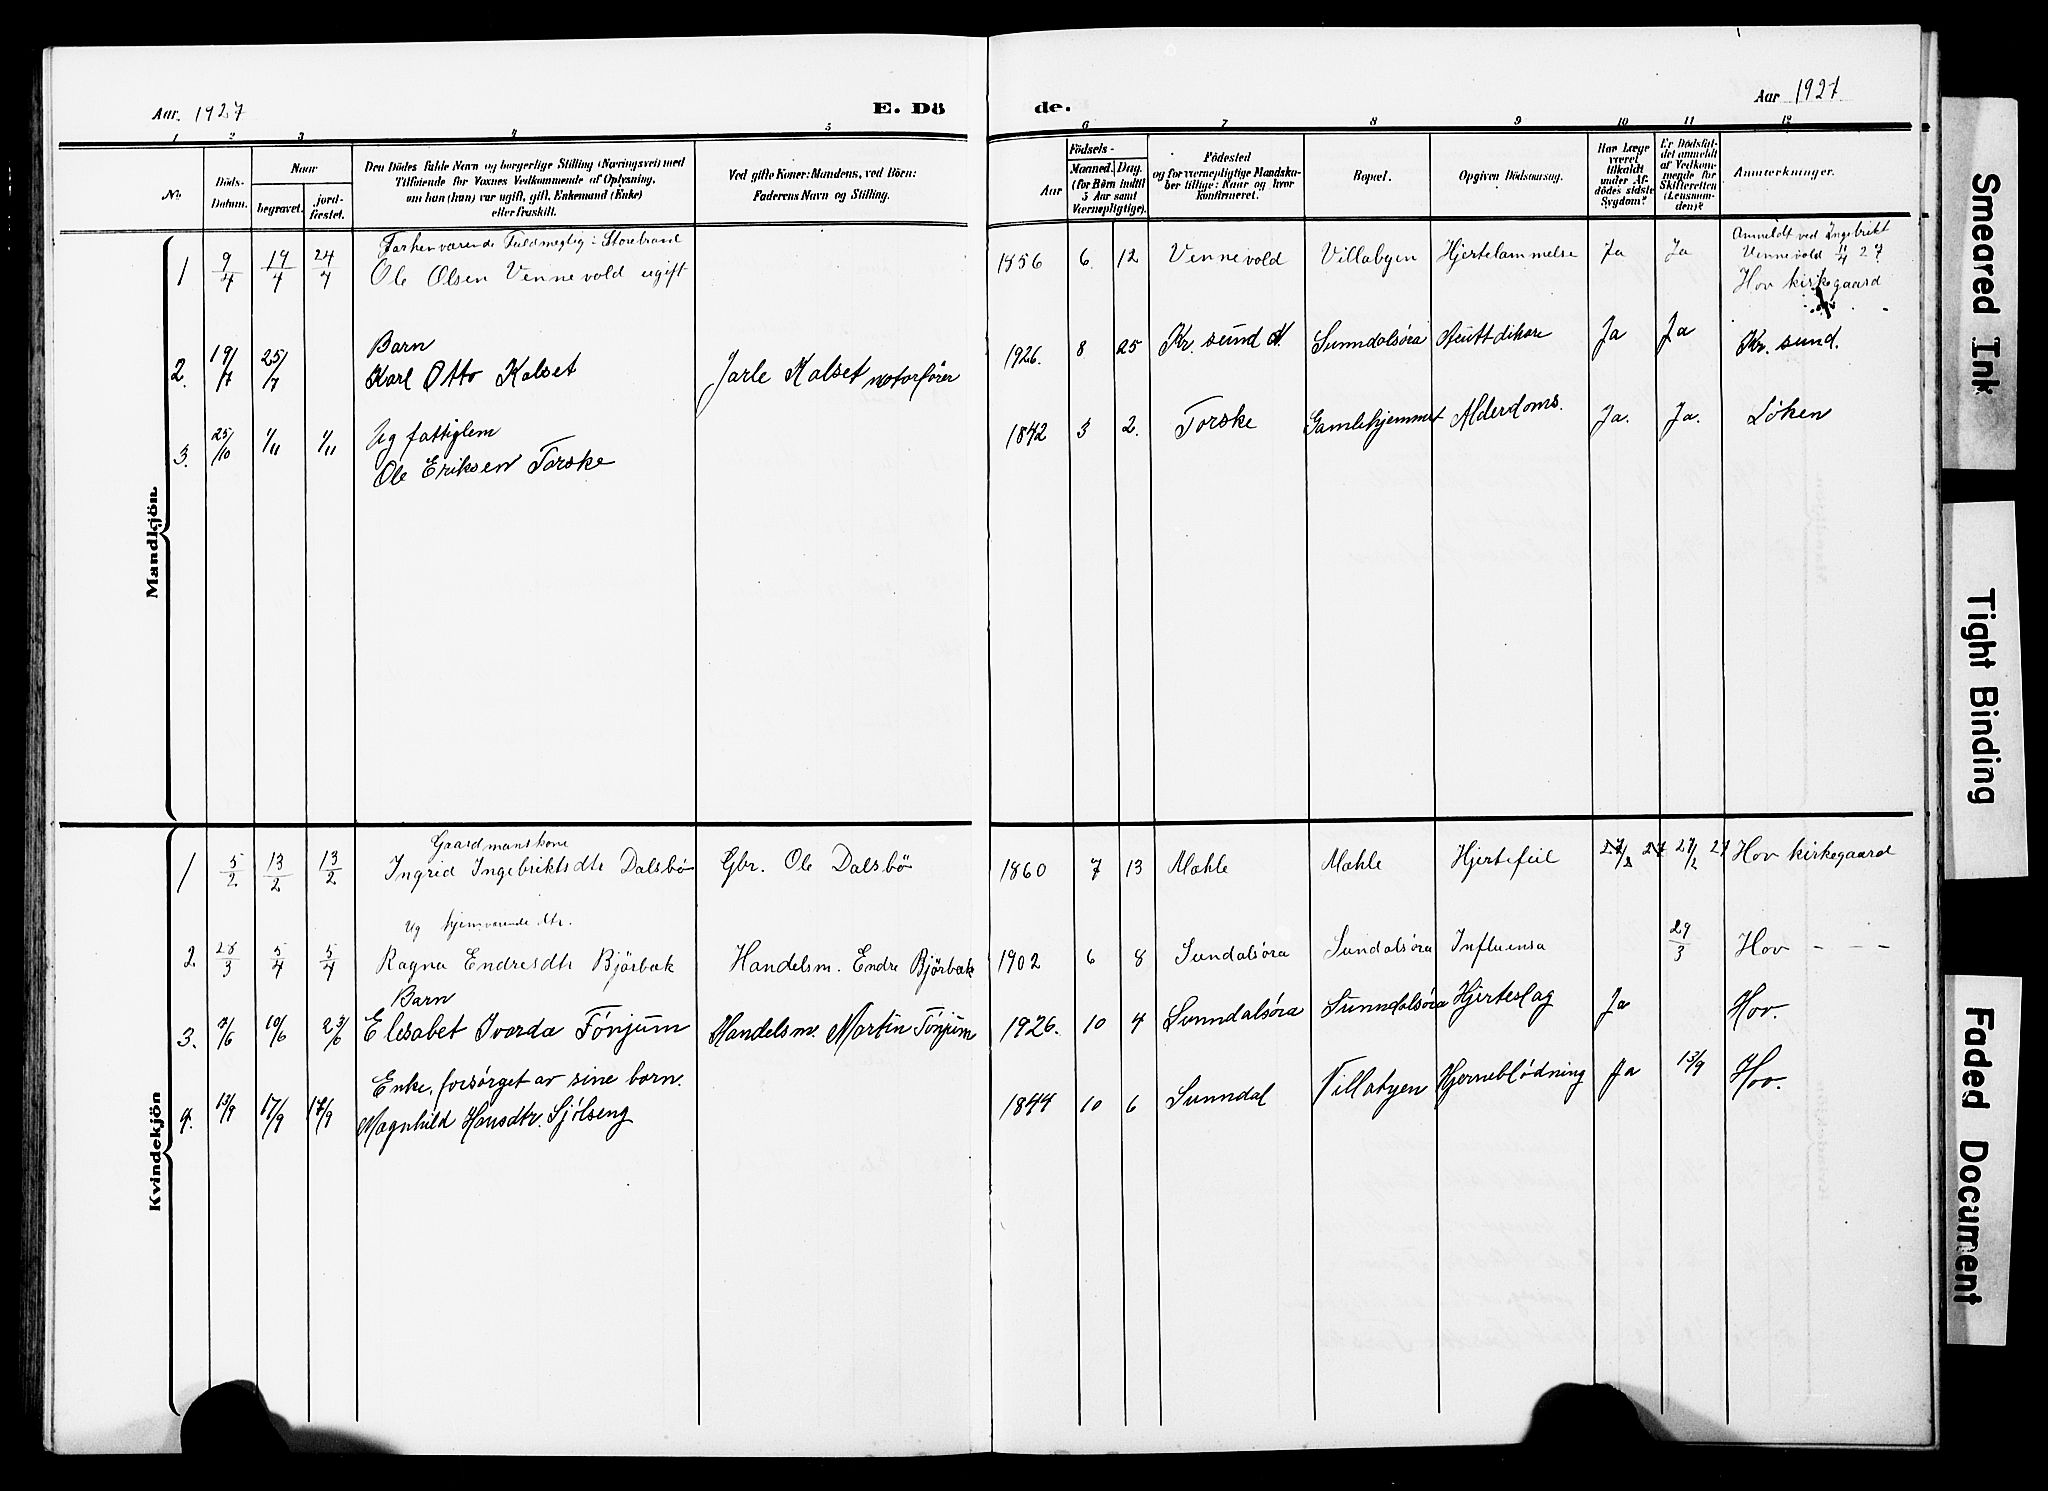 Aar. 1927
E. Dö
de.
Aar 1927
1 2 3 4 5 6 7 8 9 10 11 12
No.
Döds-
Datum.
Naar
begravet.
jord-
fæstet.
Den Dödes fulde Navn og borgerlige Stilling (Næringsvei) med
Tilföiende for Voxnes Vedkommende af Oplysning,
om han (hun) var ugift, gift, Enkemand (Enke)
eller fraskilt.
Ved gifte Koner: Mandens, ved Börn:
Faderens Navn og Stilling.
Födsels-
Aar
Maaned.
Dag.
(for Börn indtil
5 Aar samt
Værnepligtige).
Födested
og for værnepligtige Mandska-
ber tillige: Naar og hvor
konfirmeret.
Bopæl.
Opgiven Dödsaarsag.
Har Læge
været
tilkaldt
under Af-
dödes sidste
Sygdom?
Er Dödsfal-
det anmeldt
af Vedkom-
mende for
Skifteretten
(Lensman-
den)?
Anmærkninger.
Mandkjön.
Forhenværende Fuldmegtig i Storebrand
1 9/4 19/4 24/4 Ole Olsen Vennevold ugift
1856 6. 12 Vennevold Villabyen Hjertelammelse Ja Ja
Anmeldt ved Ingebrikt
Vennevold 11/4 27
Hov kirkegaard
Barn
2. 19/7 25/7 Karl Otto Kalset Jarle Kalset motorfører
1926. 8 25 Kr. sund N. Sunndalsøra Akutt dikare Ja Ja Kr. sund.
Ug fattiglem
3. 25/10 1/11 1/11 Ole Eriksen Torske
1842 3 2. Torske Gamlehjemmet Alderdoms. Ja. Ja. Løken
Kvindekjön
Gaardmanskone
1 5/2 13/2 13/2 Ingrid Ingebriktsdtr Dalsbö Gbr. Ole Dalsbö
1860 7 13 Mæhle Mæhle Hjertefeil 27/2 27 27/2 27 Hov kirkegaard
Ug hjemværende dtr.
2 28/3 5/4 5/4 Ragna Endresdtr Bjørbæk Handelsm. Endre Bjørbæk
1902 6 8 Sundalsøra Sundalsøra Influensa 29/3 Hov - - -
Barn
3. 4/6 10/6 23/6 Elisabet Ivarda Tønjum Handelsm. Martin Tønjum
1926. 10 4 Sunndalsøra Sunndalsøra Hjerteslag Ja Hov.
Enke, forsørget av sine born.
4. 13/9 17/9 17/9 Magnhild Hansdtr. Sjølseng
1844 10 6 Sunndal Villabyen Hjerneblødning Ja 13/9 Hov.
Smeared Ink
Tight Binding
Faded Document